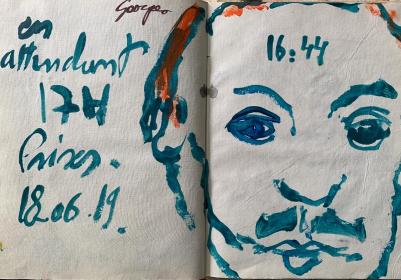 en
attendant
17H
18.06.19.
16:44